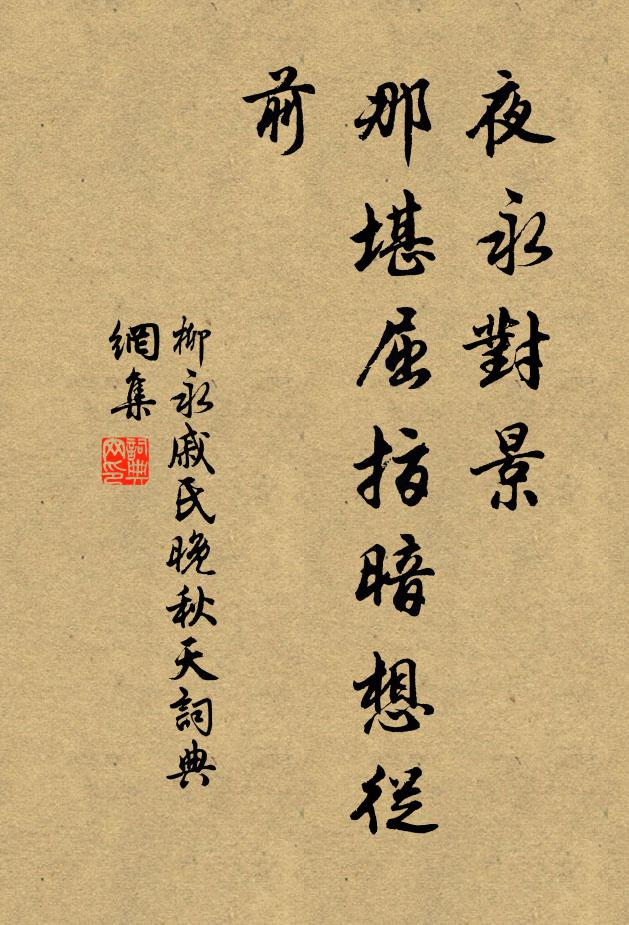 夜永對景
那堪屈指暗想從
前
柳永戚氏晚秋天詞典
網集
詞典
网印